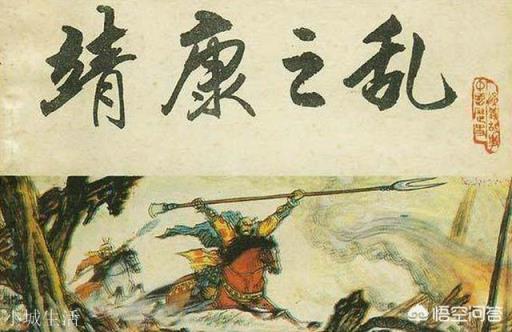 靖康之乱
小城生活
悟空问答